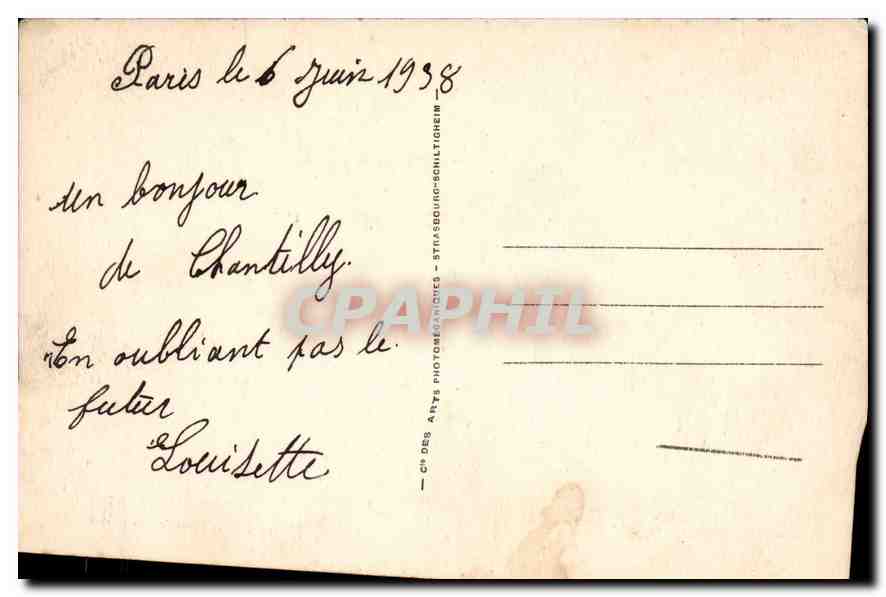 Paris le 6 Juin 1938
un bonjour
de Chantilly.
En oubliant pas le
futur
Louisette
Cie DES ARTS PHOTOMÉCANIQUES - STRASBOURG-SCHILTIGHEIM
CPAPHIL